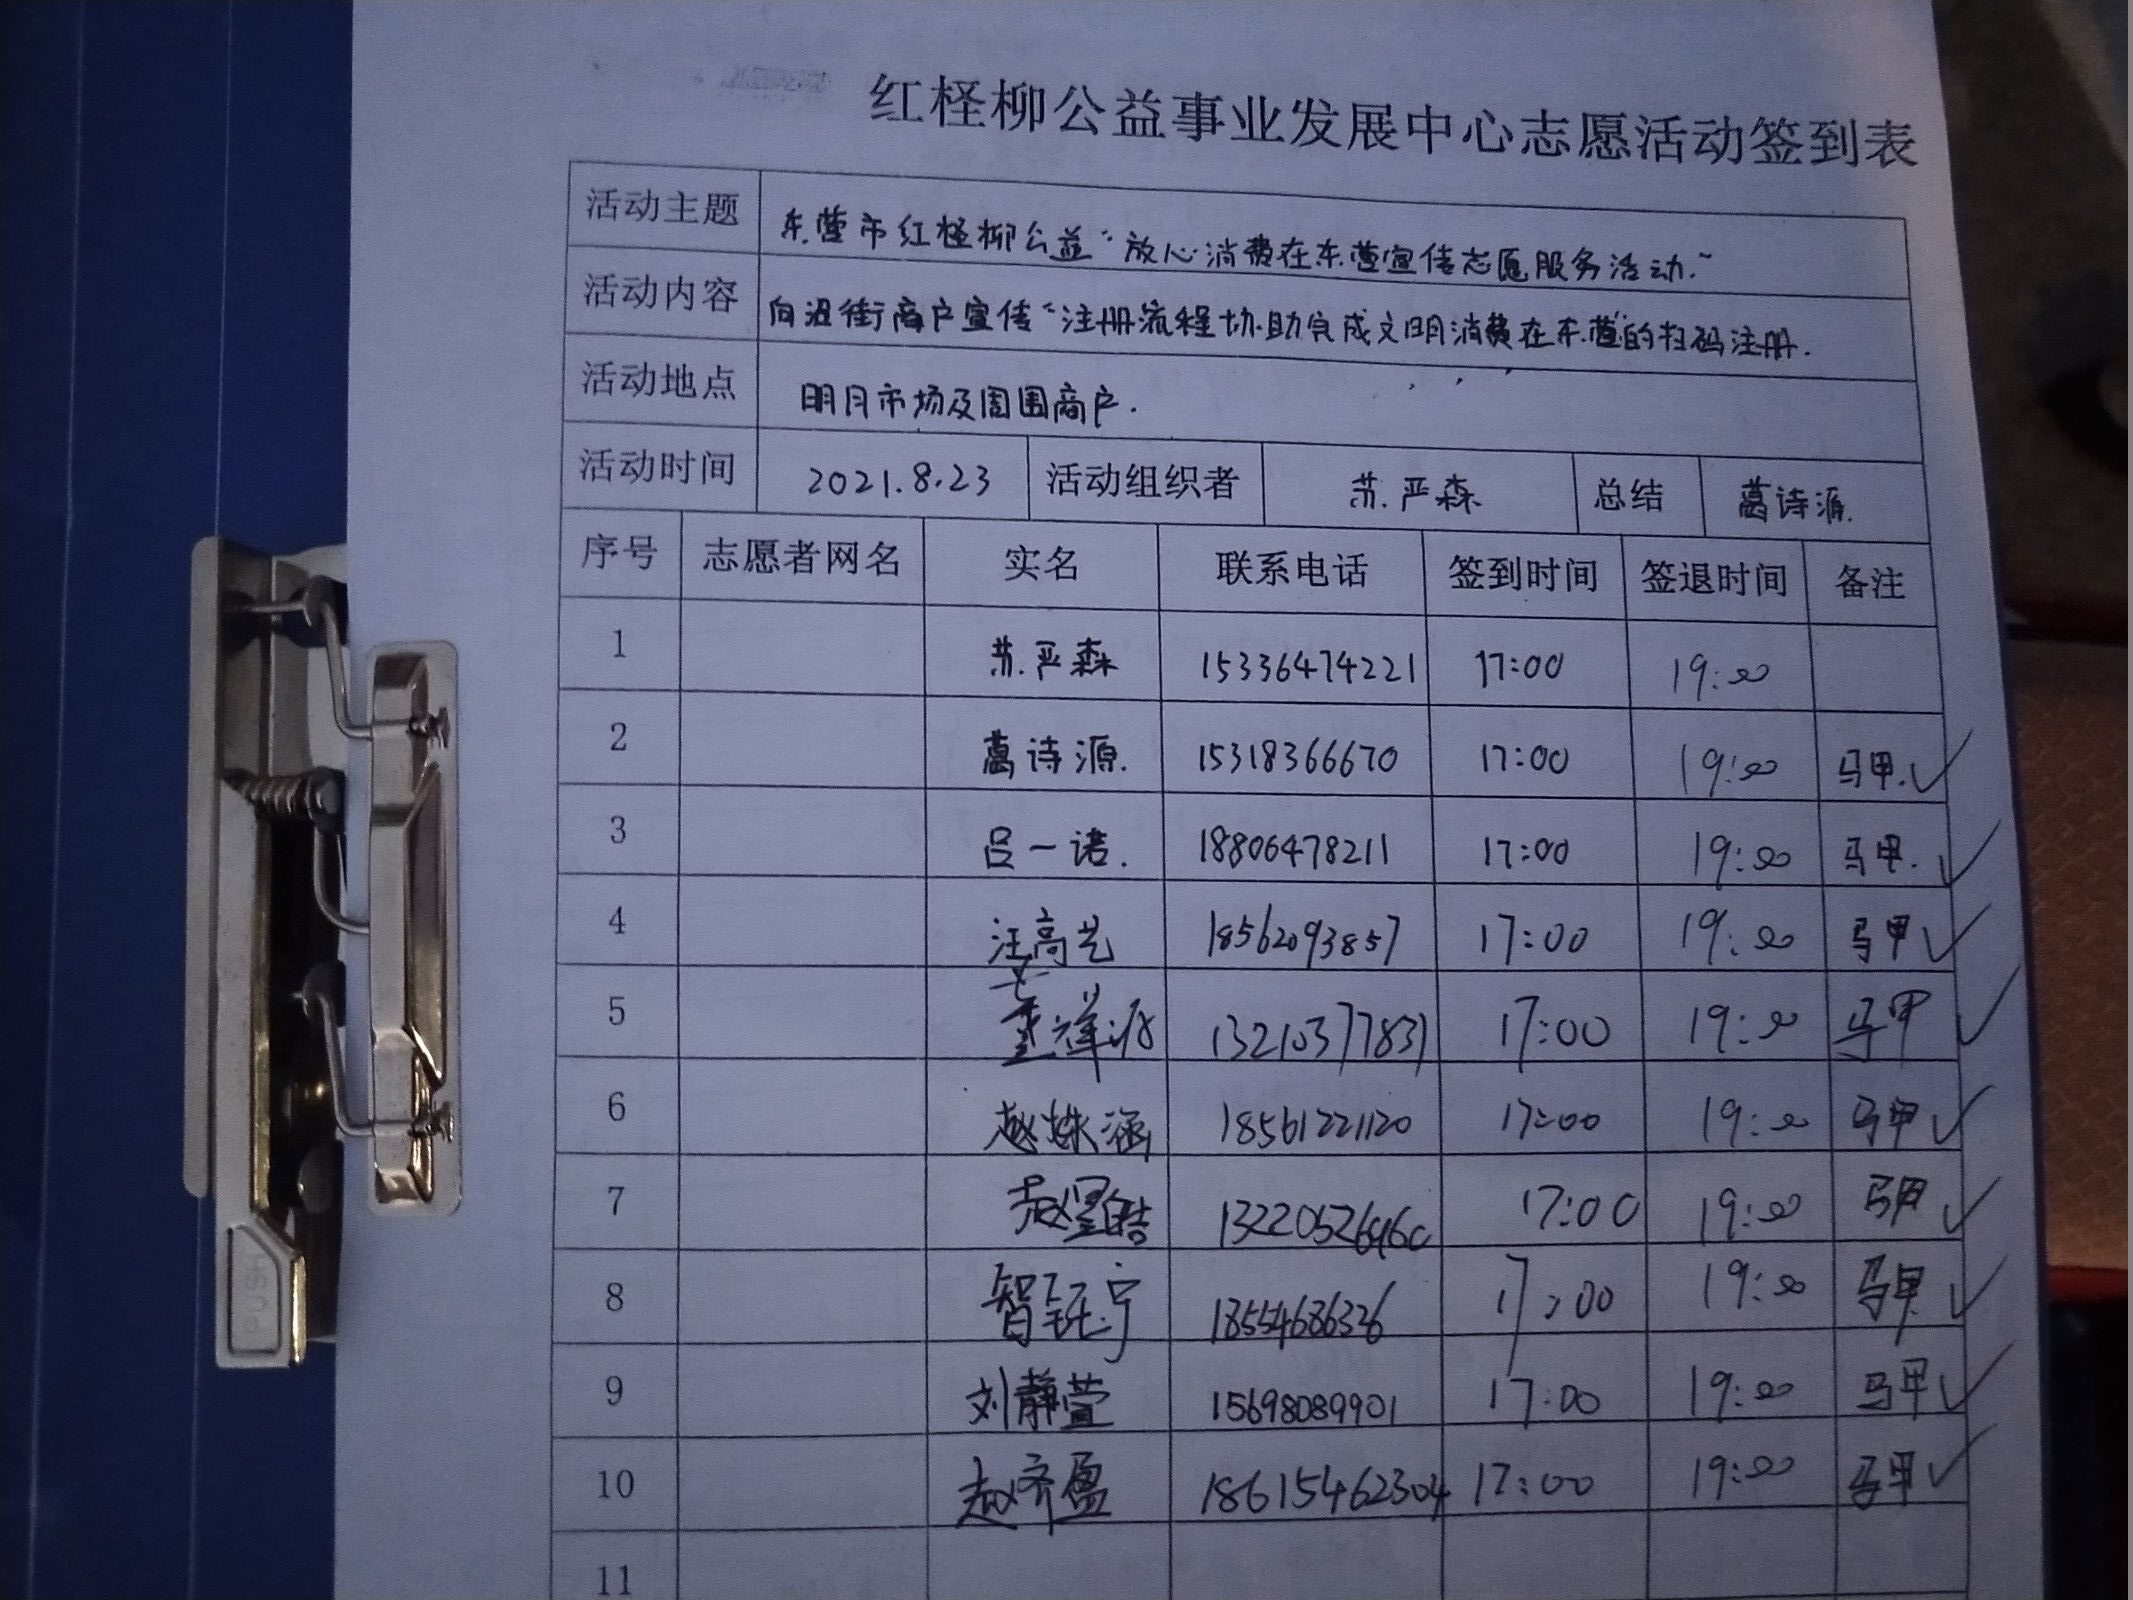 红柽柳公益事业发展中心志愿活动签到表
活动主题 东营市红柽柳公益“放心消费在东营宣传志愿服务活动.”
活动内容 向沿街商户宣传“注册流程协助完成文明消费在东营”的扫码注册.
活动地点 明月市场及周围商户.
活动时间 2021.8.23 活动组织者 苏严森 总结 葛诗源.
序号 志愿者网名 实名 联系电话 签到时间 签退时间 备注
1 苏严森 15336474221 17:00 19:00
2 葛诗源. 15318366670 17:00 19:00 马甲.✓
3 吕一诺. 18806478211 17:00 19:00 马甲.✓
4 汪高艺 18562093857 17:00 19:00 马甲✓
5 13210377831 17:00 19:00 马甲✓
6 赵姝涵 18561221120 17:00 19:00 马甲✓
7 17:00 19:00 马甲✓
8 智钰宁 18554686326 17:00 19:00 马甲✓
9 刘静萱 15698089901 17:00 19:00 马甲✓
10 赵齐盈 18615462304 17:00 19:00 马甲✓
11
PUSH